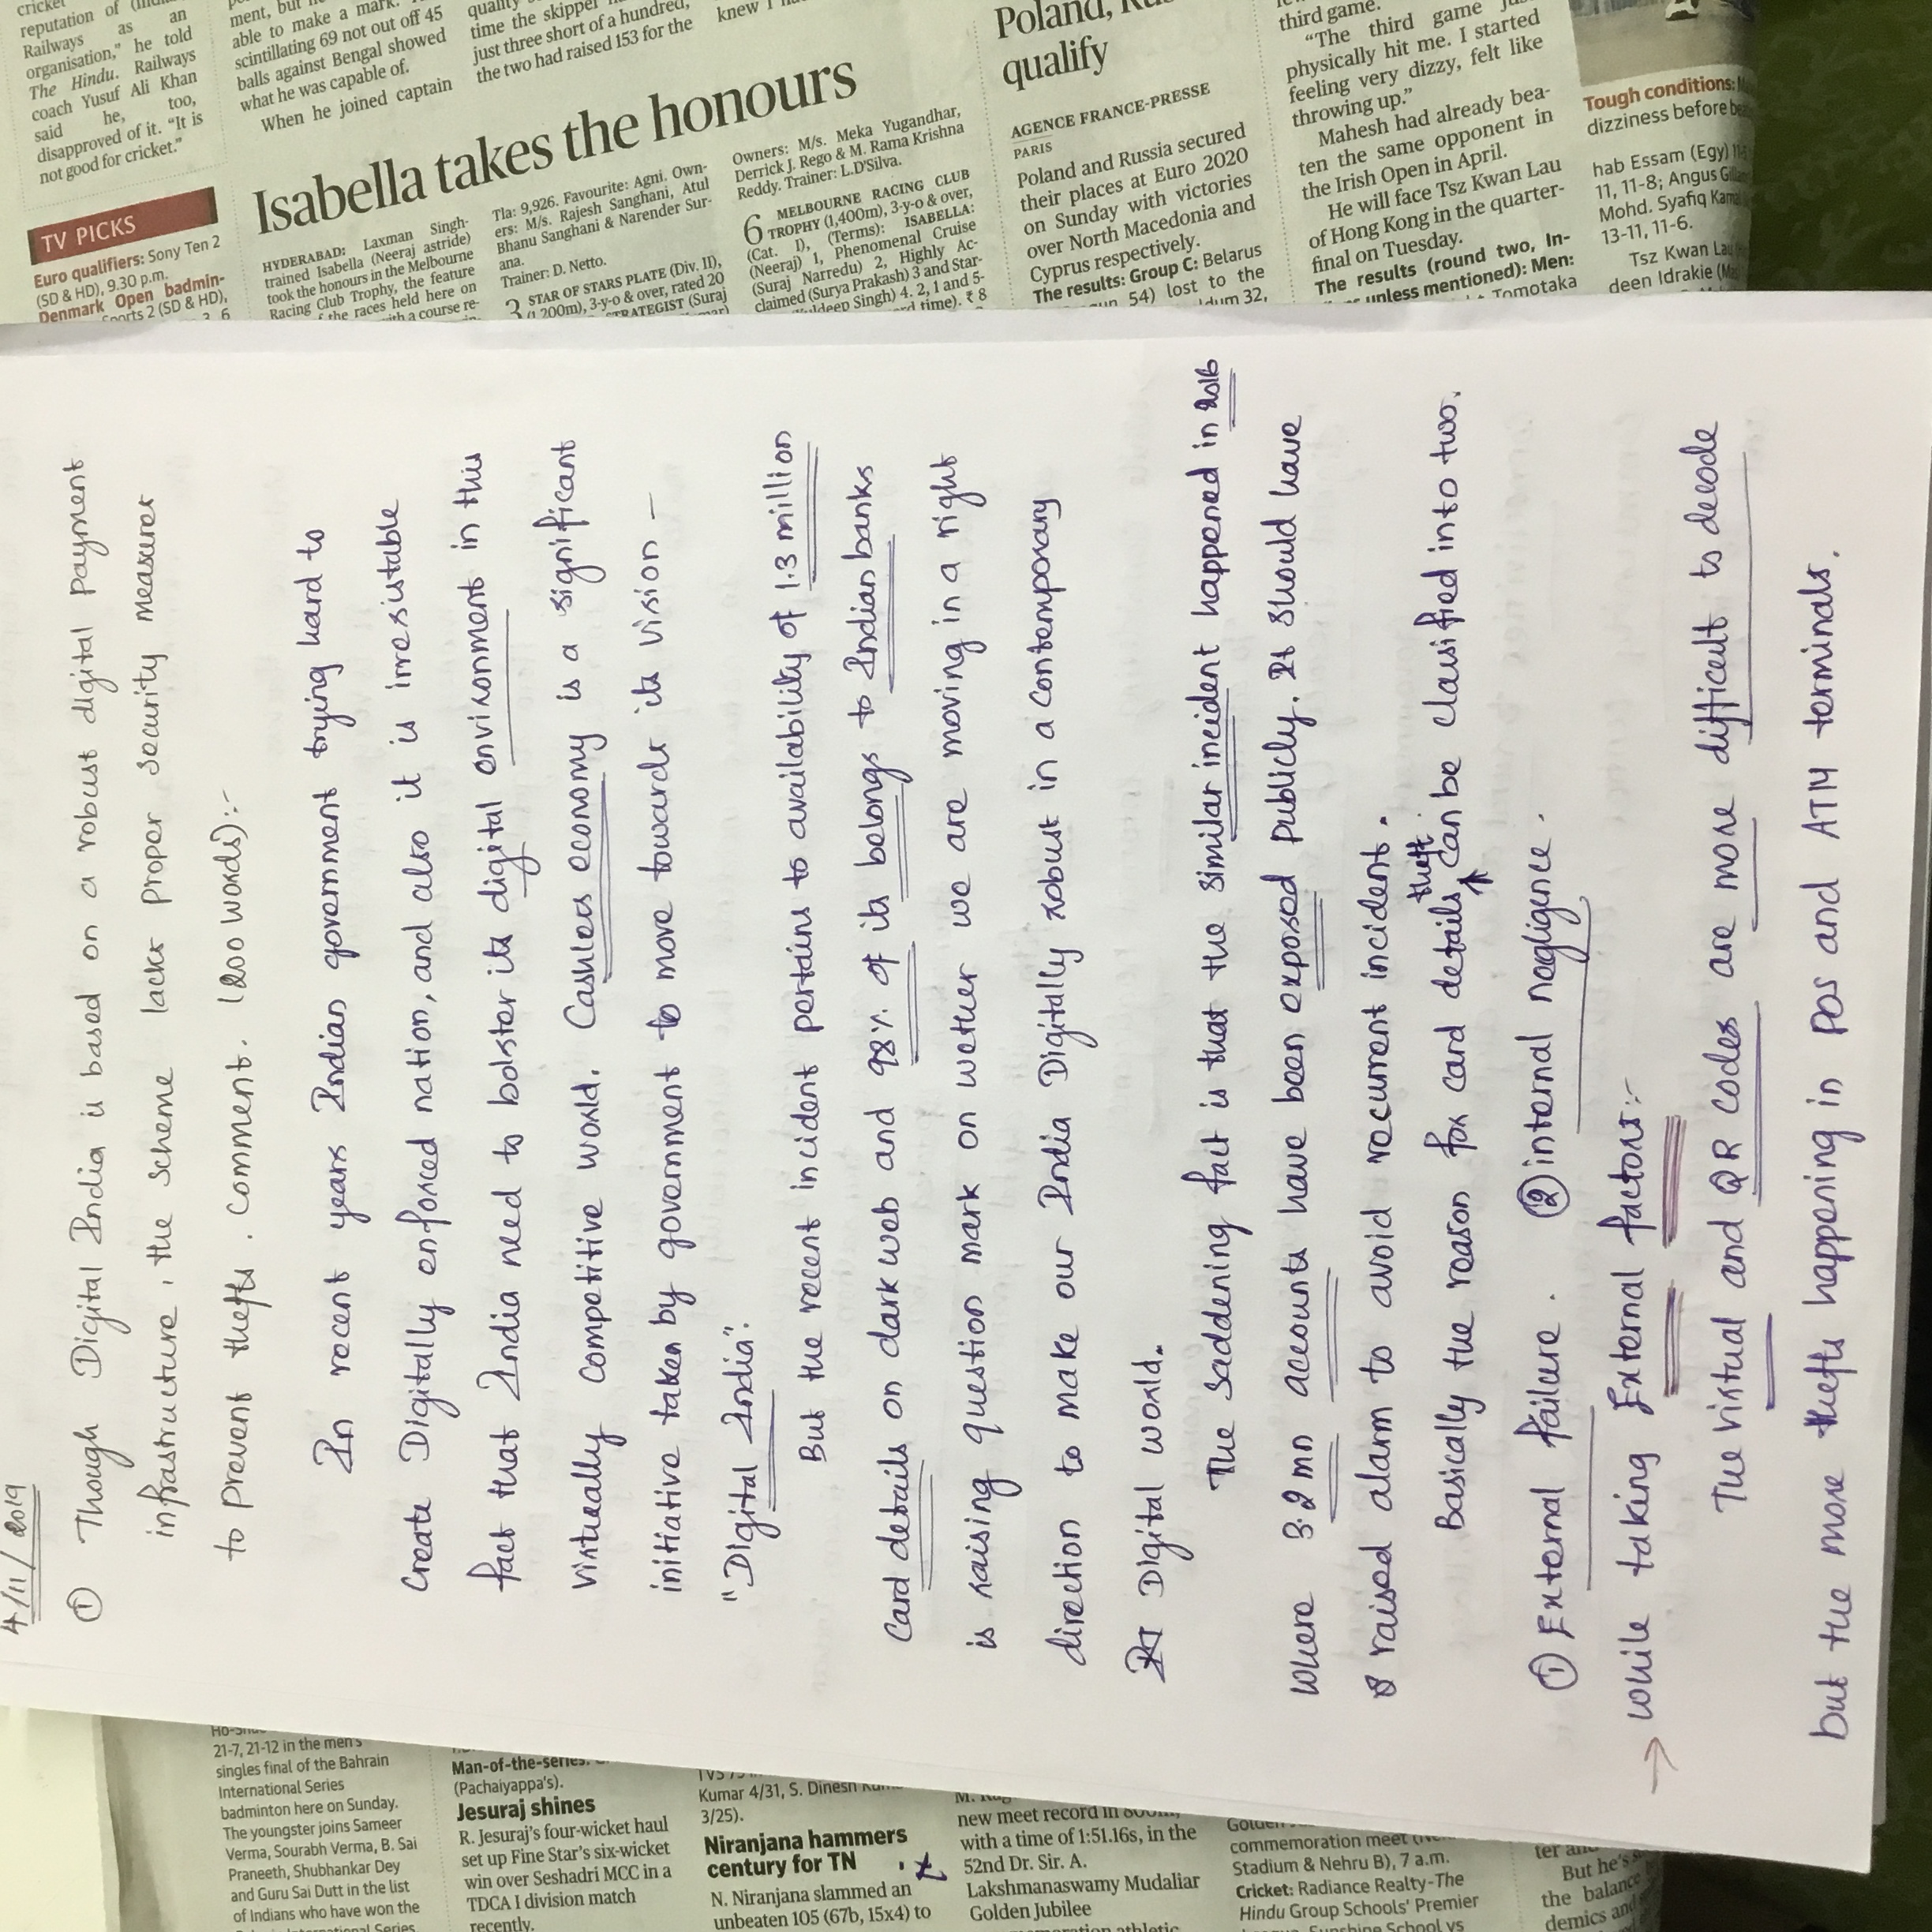 cricket
reputation of
Railways as an
organisation," he told
The Hindu. Railways
coach Yusuf Ali Khan
said he, too,
disapproved of it. "It is
not good for cricket."
TV PICKS
Euro qualifiers: Sony Ten 2
(SD & HD), 9.30 p.m.
Denmark Open badmin-
ment, but
able to make a mark.
scintillating 69 not out off 45
balls against Bengal showed
what he was capable of.
When he joined captain
quality
time the skipper
just three short of a hundred,
the two had raised 153 for the
knew I
Isabella takes the honours
HYDERABAD: Laxman Singh-
trained Isabella (Neeraj astride)
took the honours in the Melbourne
Racing Club Trophy, the feature
the races held here on
Tla: 9,926. Favourite: Agni. Own-
ers: M/s. Rajesh Sanghani, Atul
Bhanu Sanghani & Narender Sur-
ana.
Trainer: D. Netto.
3 STAR OF STARS PLATE (Div. II),
(1,200m), 3-y-o & over, rated 20
Owners: M/s. Meka Yugandhar,
Derrick J. Rego & M. Rama Krishna
Reddy. Trainer: L.D'Silva.
6 MELBOURNE RACING CLUB
TROPHY (1,400m), 3-y-o & over,
(Cat. I), (Terms): ISABELLA:
(Neeraj) 1, Phenomenal Cruise
(Suraj Narredu) 2, Highly Ac-
claimed (Surya Prakash) 3 and Star-
Singh) 4. 2, 1 and 5-
Poland,
qualify
AGENCE FRANCE-PRESSE
PARIS
Poland and Russia secured
their places at Euro 2020
on Sunday with victories
over North Macedonia and
Cyprus respectively.
The results: Group C: Belarus
54) lost to the
third game.
"The third game
physically hit me. I started
feeling very dizzy, felt like
throwing up."
Mahesh had already bea-
ten the same opponent in
the Irish Open in April.
He will face Tsz Kwan Lau
of Hong Kong in the quarter-
final on Tuesday.
The results (round two, In-
unless mentioned): Men:
Tomotaka
Tough conditions:
dizziness before
hab Essam (Egy)
11, 11-8; Angus
Mohd. Syafiq
13-11, 11-6.
Tsz Kwan Lau
deen Idrakie
4/11/2019
① Though Digital India is based on a robust digital payment
infrastructure, the scheme lacks proper security measures
to prevent thefts. comment. (200 words):-
In recent years Indian government trying hard to
create Digitally enforced nation, and also it is irresistable
fact that India need to bolster its digital environment in this
virtually competitive world. Cashless economy is a significant
initiative taken by government to move towards its vision –
"Digital India".
But the recent incident pertains to availability of 1.3 million
Card details on dark web and 98% of its belongs to Indian banks
is raising question mark on wether we are moving in a right
direction to make our India Digitally robust in a contemporary
Digital world.
The saddening fact is that the similar incident happened in 2016
where 3.2 mn accounts have been exposed publicly. It should have
raised alarm to avoid recurrent incident.
Basically the reason for card details theft can be classified into two.
① External failure. ② internal negligence.
→ while taking External factors:-
The virtual and QR codes are more difficult to decode
but the more thefts happening in POS and ATM terminals.
21-7, 21-12 in the men's
singles final of the Bahrain
International Series
badminton here on Sunday.
The youngster joins Sameer
Verma, Sourabh Verma, B. Sai
Praneeth, Shubhankar Dey
and Guru Sai Dutt in the list
of Indians who have won the
Man-of-the-series:
(Pachaiyappa's).
Jesuraj shines
R. Jesuraj's four-wicket haul
set up Fine Star's six-wicket
win over Seshadri MCC in a
TDCA I division match
recently.
Kumar 4/31, S. Dinesh
3/25).
Niranjana hammers
century for TN
N. Niranjana slammed an
unbeaten 105 (67b, 15x4) to
new meet record in 800m,
with a time of 1:51.16s, in the
52nd Dr. Sir. A.
Lakshmanaswamy Mudaliar
Golden Jubilee
commemoration meet
Stadium & Nehru B), 7 a.m.
Cricket: Radiance Realty-The
Hindu Group Schools' Premier
But he's
the balance
demics and